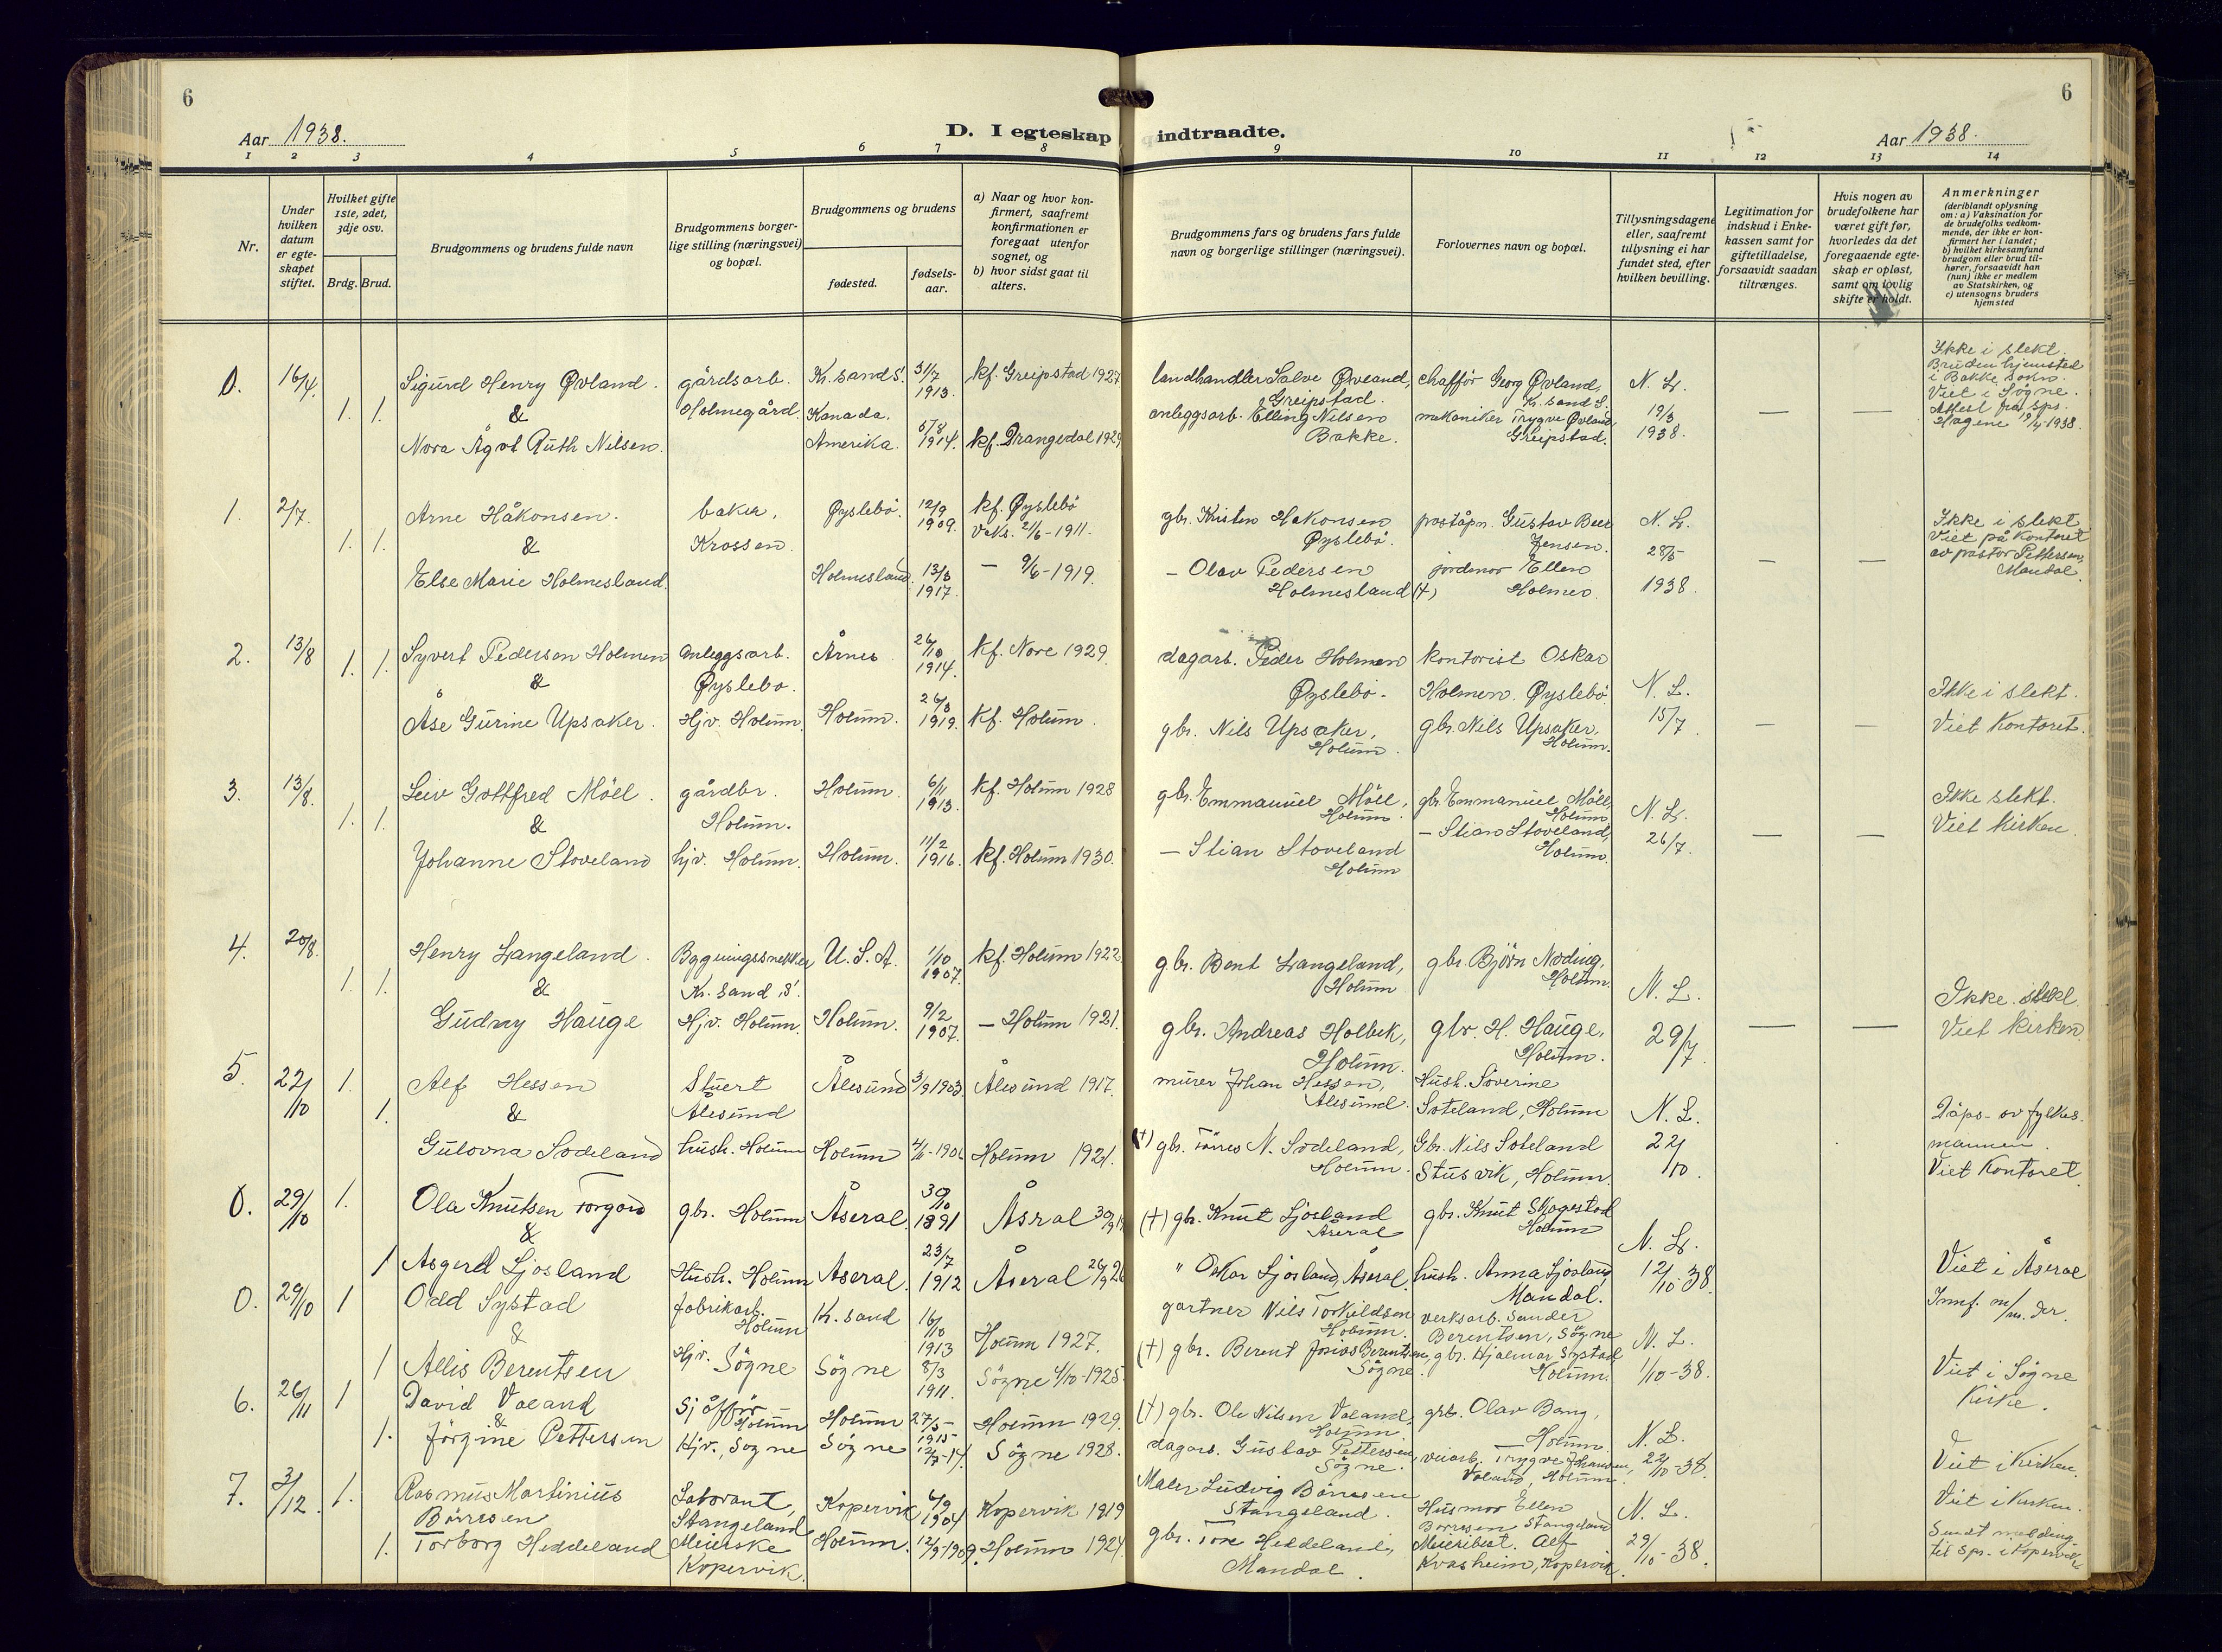 6
6
Aar 1938.
D. I egteskap indtraadte.
Aar 1938.
1 2 3 4 5 6 7 8 9 10 11 12 13 14
Nr.
Under hvilken datum er egteskapet stiftet.
Hvilket gifte 1ste, 2det, 3dje osv.
Brdg. Brud.
Brudgommens og brudens fulde navn
Brudgommens borgerlige stilling (næringsvei) og bopæl.
Brudgommens og brudens
fødested.
fødselsaar.
a) Naar og hvor konfirmert, saafremt konfirmationen er foregaat utenfor sognet, og
b) hvor sidst gaat til alters.
Brudgommens fars og brudens fars fulde navn og borgerlige stillinger (næringsvei).
Forlovernes navn og bopæl.
Tillysningsdagene eller, saafremt tillysning ei har fundet sted, efter hvilken bevilling.
Legitimation for indskud i Enkekassen samt for giftetilladelse, forsaavidt saadan tiltrænges.
Hvis nogen av brudefolkene har været gift før, hvorledes da det foregaaende egteskap er opløst, samt om lovlig skifte er holdt.
Anmerkninger
(deriblandt oplysning om: a) Vaksination for de brudefolks vedkommende, der ikke er konfirmert her i landet;
b) hvilket kirkesamfund brudgom eller brud tilhører, forsaavidt han (hun) ikke er medlem av Statskirken, og
c) utensogns bruders hjemsted
0. 16/4. 1. 1. Sigurd Henry Øvland. gårdsarb. Kr.sand S. 31/7 1913. kf. Greipstad 1927
& Holmegård. Kanada.
Nora Ågot Ruth Nilsen. Amerika. 5/8 1914. kf. Drangedal 1929
landhandler Salve Øvland, Greipstad. chaffør Georg Øvland, Kr.sand S. N. L.
anleggsarb. Elling Nilsen Bakke. mekaniker Trygve Øvland, Greipstad. 19/3 1938. — —
Ikke i slekt.
Bruden hjemsted
i Bakke sokn.
Viet i Søgne.
Attest fra sps.
Hagene 19/4 1938.
1. 2/7. 1. 1. Arne Håkonsen. baker, Øyslebö. 12/9 1909. kf. Øyslebö
& Krossen.
Else Marie Holmesland. Holmesland. 13/3 1917. — 9/6-1919.
gbr. Kristen Hakonsen Øyslebö. poståpn. Gustav Beer Jensen. N. L.
— Olav Pedersen Holmesland (+) jordmor Ellen Holmen. 28/5 1938. — —
Ikke i slekt
Viet på Kontoret
av pastor Pettersen,
Mandal.
2. 13/8 1. 1. Syvert Pedersen Holmen Anleggsarb. Årnes 26/10 1914. kf. Nore 1929.
& Øyslebö.
Åse Gurine Upsaker. Hjv. Holum. Holum. 26/3 1919. kf. Holum.
dagarb. Peder Holmen Øyslebö. kontorist Oskar Holmen. Øyslebö. N. L.
gbr. Nils Upsaker, Holum. gbr. Nils Upsaker, Holum. 15/7 — —
Ikke i slekt.
Viet Kontoret.
3. 13/8. 1. 1. Leiv Gottfred Möll. gårdbr. Holum. 6/11 1913. kf. Holum 1928
& Holum.
Johanne Stoveland hjv. Holum. Holum. 11/2 1916. kf. Holum 1930.
gbr. Emmanuel Möll, Holum. gbr. Emmanuel Möll, Holum. N. L.
— Stian Stoveland Holum — Stian Stoveland, Holum. 26/7. — —
Ikke slekt.
Viet kirken.
4. 20/8. 1. 1. Henry Langeland. Bygningssnekker U.S.A. 1/10 1907. kf. Holum 1922
& Kr. sand, S.
Gudny Hauge Hjv. Holum. Holum. 9/2 1907. — Holum 1921.
gbr. Bent Langeland, Holum gbr. Björn Nöding, Holum. N. L.
gbr. Andreas Holbek, Holum. gbr. H. Hauge, Holum. 29/7. — —
Ikke slekt
Viet kirken
5. 22/10 1. 1. Alf Hessen Stuert Ålesund 3/9 1903 Ålesund 1917.
& Ålesund
Gulovna Sodeland hush. Holum Holum Holum 1921.
murer Johan Hessen, Ålesund. Hush. Soverine Soteland, Holum N. L.
(+) gbr. Tørres N. Sodeland, Holum. Gbr. Nils Soteland Stusvik, Holum. 22/10.
Dåps- av fylkes-
mannen.
Viet Kontoret.
0. 29/10 1. Ola Knutsen Torgård gbr. Holum Åseral. 30/10 1891 Åsral
&
1 Asgerd Ljosland Hush. Holum Åseral. 23/7 1912 Åseral
(+) gbr. Knut Ljosland Åseral gbr. Knut Skogestad Holum N. L.
" Oskar Ljosland, Åseral. hush. Anna Ljosland Mandal. 12/10-38.
Viet i Åseral
0. 29/10 1 Odd Systad fabrikarb. Holum Kr. sand 16/10 1913 Holum 1927.
&
1 Allis Berentsen Hjv. Søgne Søgne 8/3 1911. Søgne 4/10-1925.
gartner Nils Torkildsen Holum. verksarb. Sander Berentsen, Søgne N. L.
(+) gbr. Berent Josias Berentsen, Søgne. gbr. Hjalmar Systad Holum. 1/10-38.
Viet i Søgne
Kirke.
6. 26/11 1 David Valand Sjåffør Holum Holum 27/5- 1915 Holum 1929.
&
1. Jörgine Pettersen Hjv. Søgne Søgne Søgne 1928.
(+) gbr. Ole Nilsen Valand, Holum grb. Olav Bang, — Holum. N. L.
dagarb. Gustav Pettersen, Søgne. veiarb. Trygve Johansen, Valand, Holum. 22/10-38.
Viet i Kirken.
7. 3/12. 1. Rasmus Martinius Börresen Laborant, Stangeland Kopervik 6/9 1904 Kopervik 1919
1. Torborg Heddeland Meierske Kopervik. Holum. 12/9-1909. Holum 1924.
Maler Ludvig Börresen Stangeland. Husmor Ellen Börresen Stangeland N. L.
gbr. Tore Heddeland, Mandal. Meieribest. Alf Kvasheim, Kopervik. 29/10-38.
Viet i Kirken.
Sendt melding
til Spr. i Kopervik